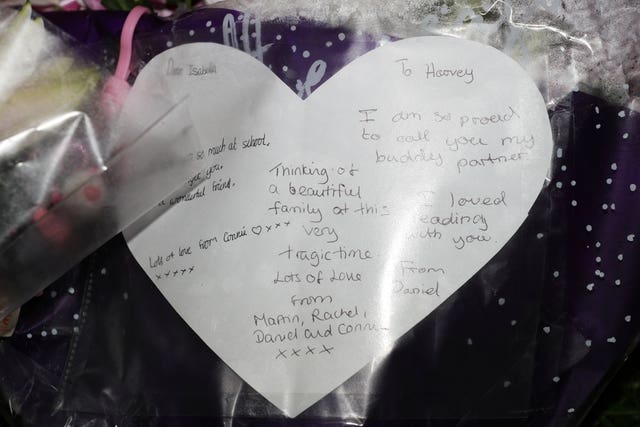 Dear Isabella
so much at school,
you,
wonderful friend,
Lots of love from Connie ♡ x x x
x x x x x
Thinking of
a beautiful
family at this
very
tragic time
Lots of Love
from
Martin, Rachel,
Daniel and Connie
x x x x
To Harvey
I am so proud
to call you my
buddy partner.
I loved
reading
with you.
From
Daniel